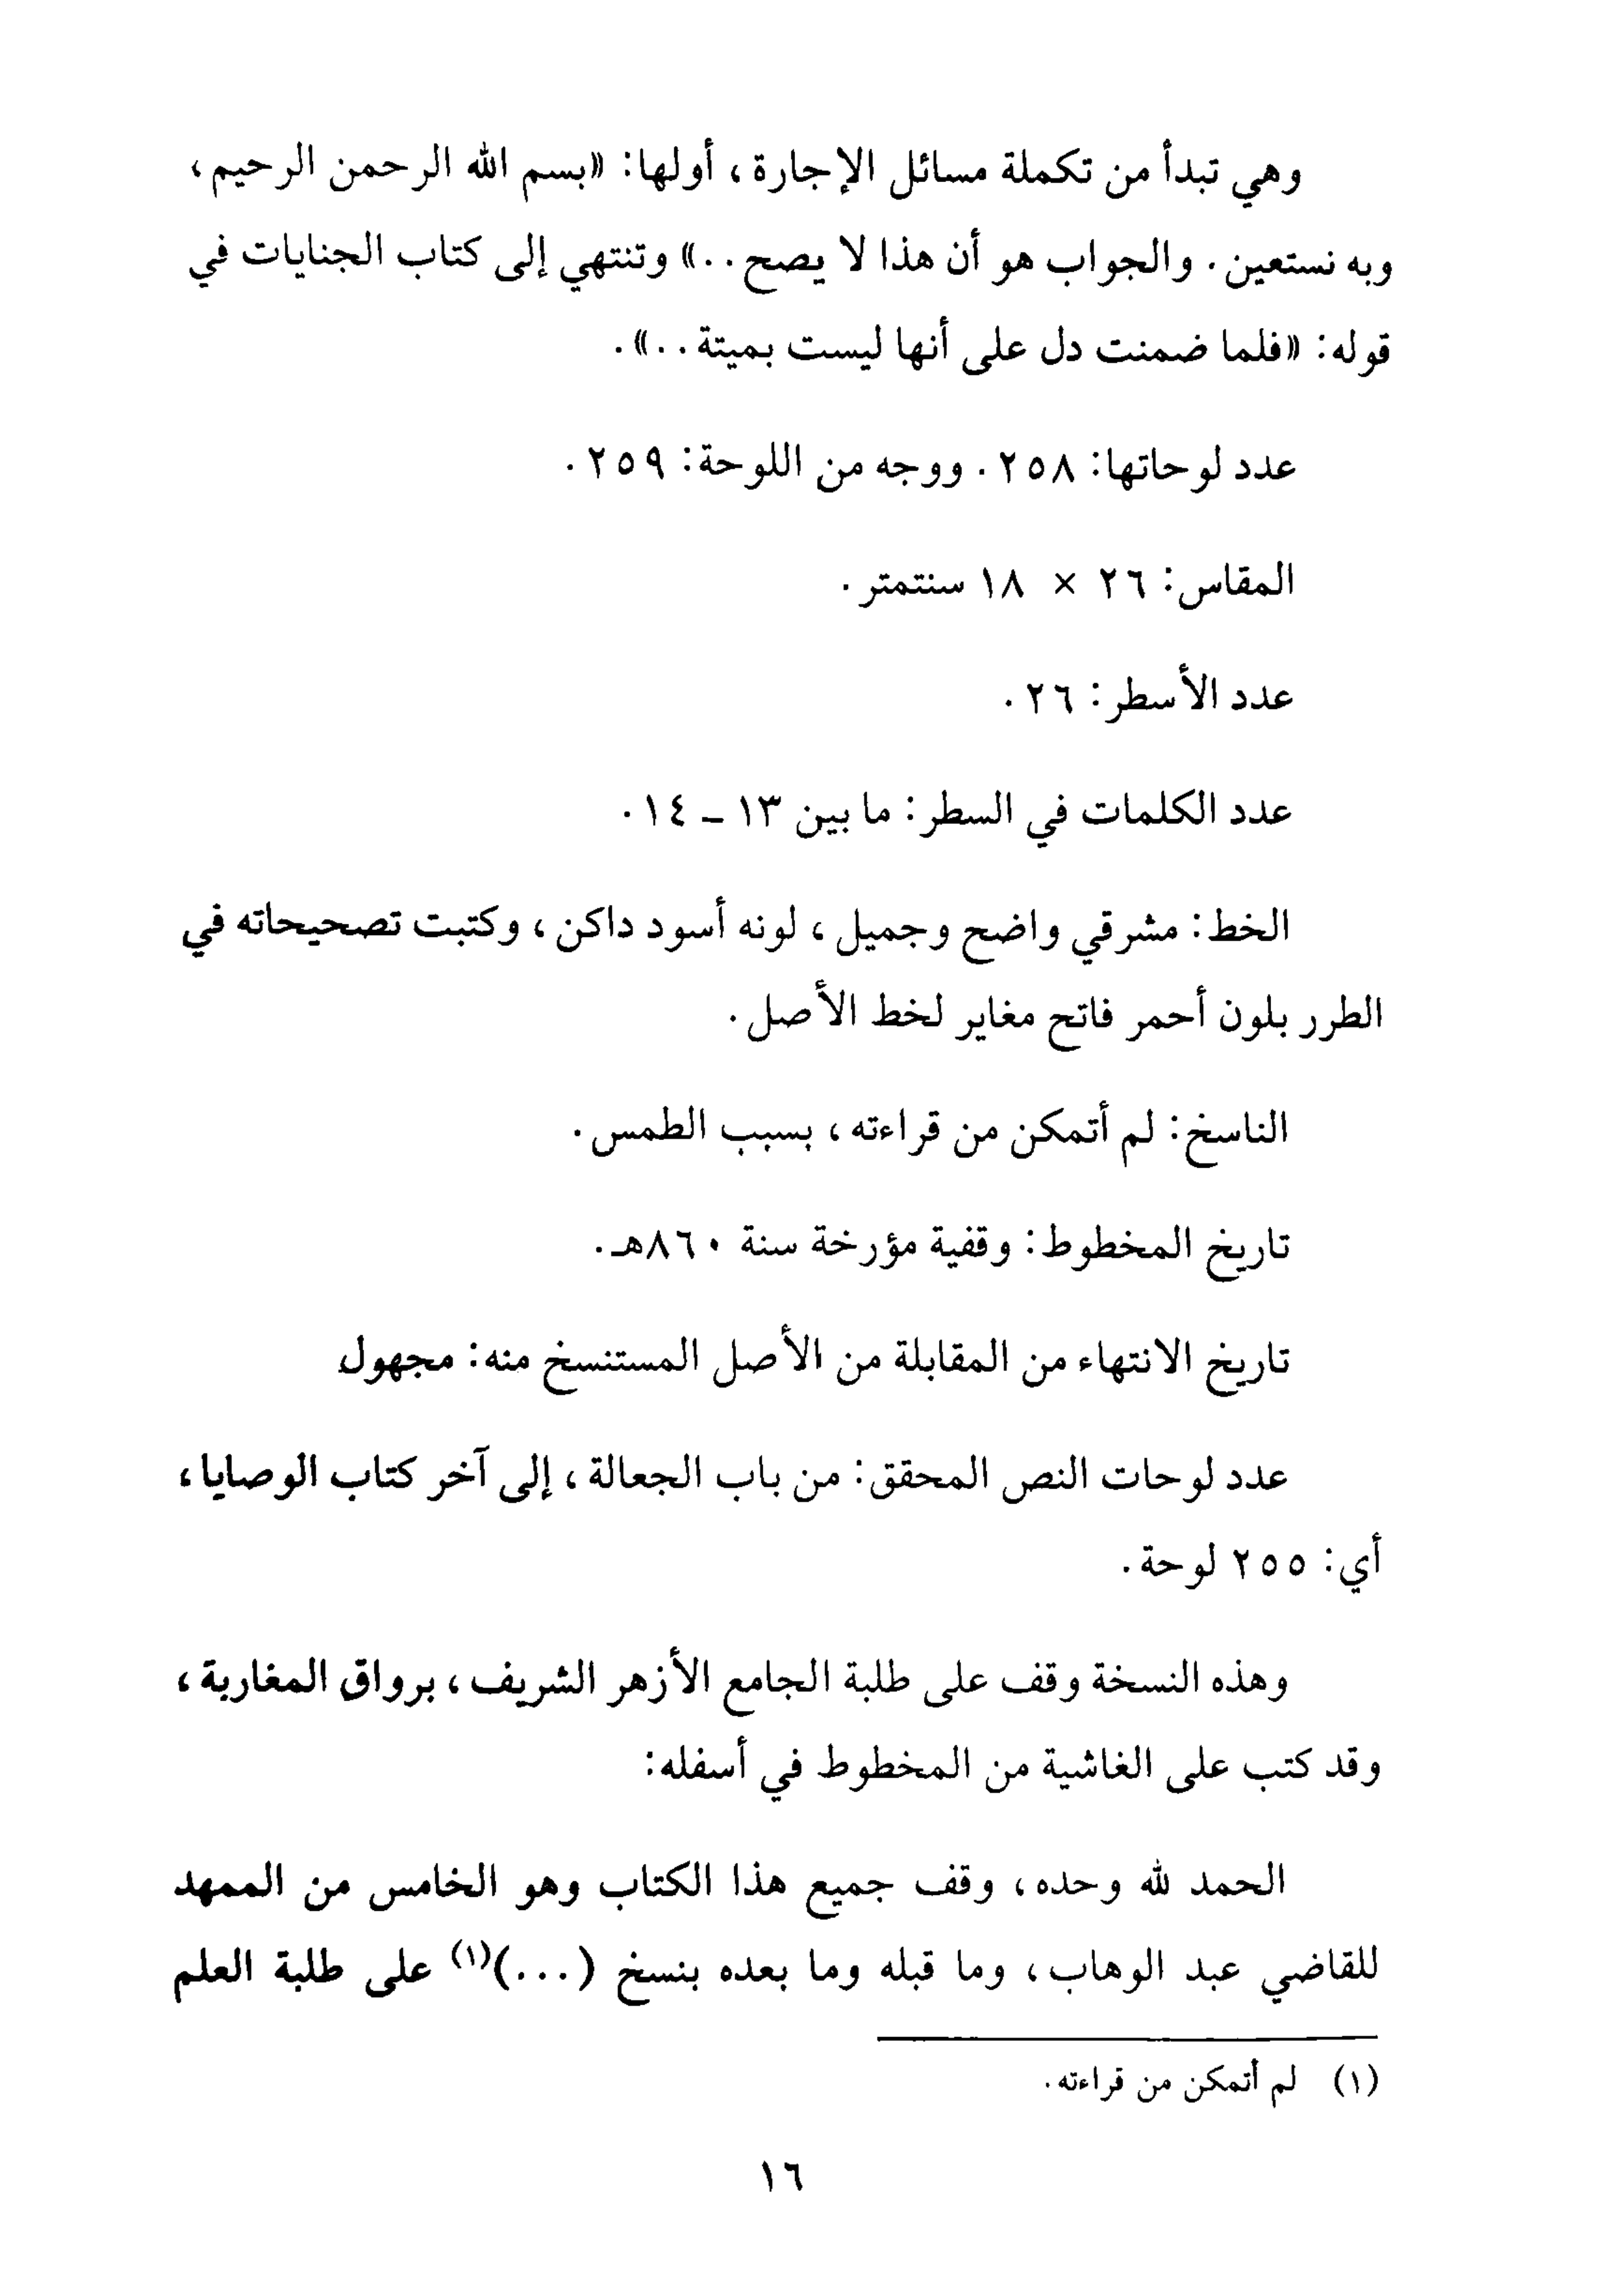 وهي تبدأ من تكملة مسائل الإجارة، أولها: «بسم الله الرحمن الرحيم،
وبه نستعين. والجواب هو أن هذا لا يصح..» وتنتهي إلى كتاب الجنايات في
قوله: «فلما ضمنت دل على أنها ليست بميتة..».
عدد لوحاتها: ٢٥٨. ووجه من اللوحة: ٢٥٩.
المقاس: ٢٦ × ١٨ سنتمتر.
عدد الأسطر: ٢٦.
عدد الكلمات في السطر: ما بين ١٣ - ١٤.
الخط: مشرقي واضح وجميل، لونه أسود داكن، وكتبت تصحيحاته في
الطرر بلون أحمر فاتح مغاير لخط الأصل.
الناسخ: لم أتمكن من قراءته، بسبب الطمس.
تاريخ المخطوط: وقفية مؤرخة سنة ٨٦٠هـ.
تاريخ الانتهاء من المقابلة من الأصل المستنسخ منه: مجهول
عدد لوحات النص المحقق: من باب الجعالة، إلى آخر كتاب الوصايا،
أي: ٢٥٥ لوحة.
وهذه النسخة وقف على طلبة الجامع الأزهر الشريف، برواق المغاربة،
وقد كتب على الغاشية من المخطوط في أسفله:
الحمد لله وحده، وقف جميع هذا الكتاب وهو الخامس من الممهد
للقاضي عبد الوهاب، وما قبله وما بعده بنسخ (...)(١) على طلبة العلم
(١) لم أتمكن من قراءته.
١٦